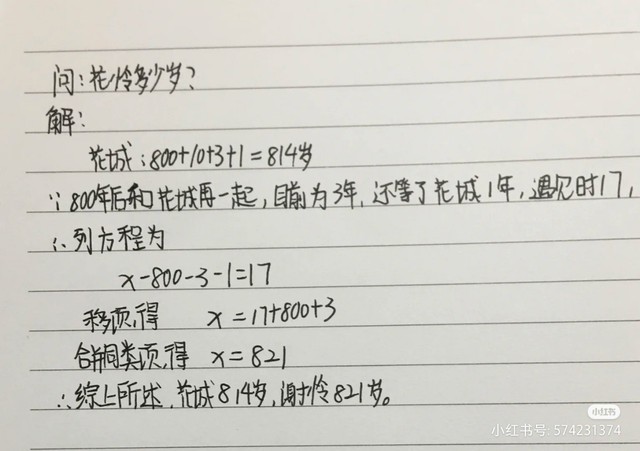 问:花怜多少岁?
解:
花城:800+10+3+1=814岁
∵800年后和花城再一起,目前为3年,还等了花城1年,遇见时17,
∴列方程为
x-800-3-1=17
移项,得 x=17+800+3
合并同类项,得 x=821
∴综上所述,花城814岁,谢怜821岁。
小红书
小红书号: 574231374